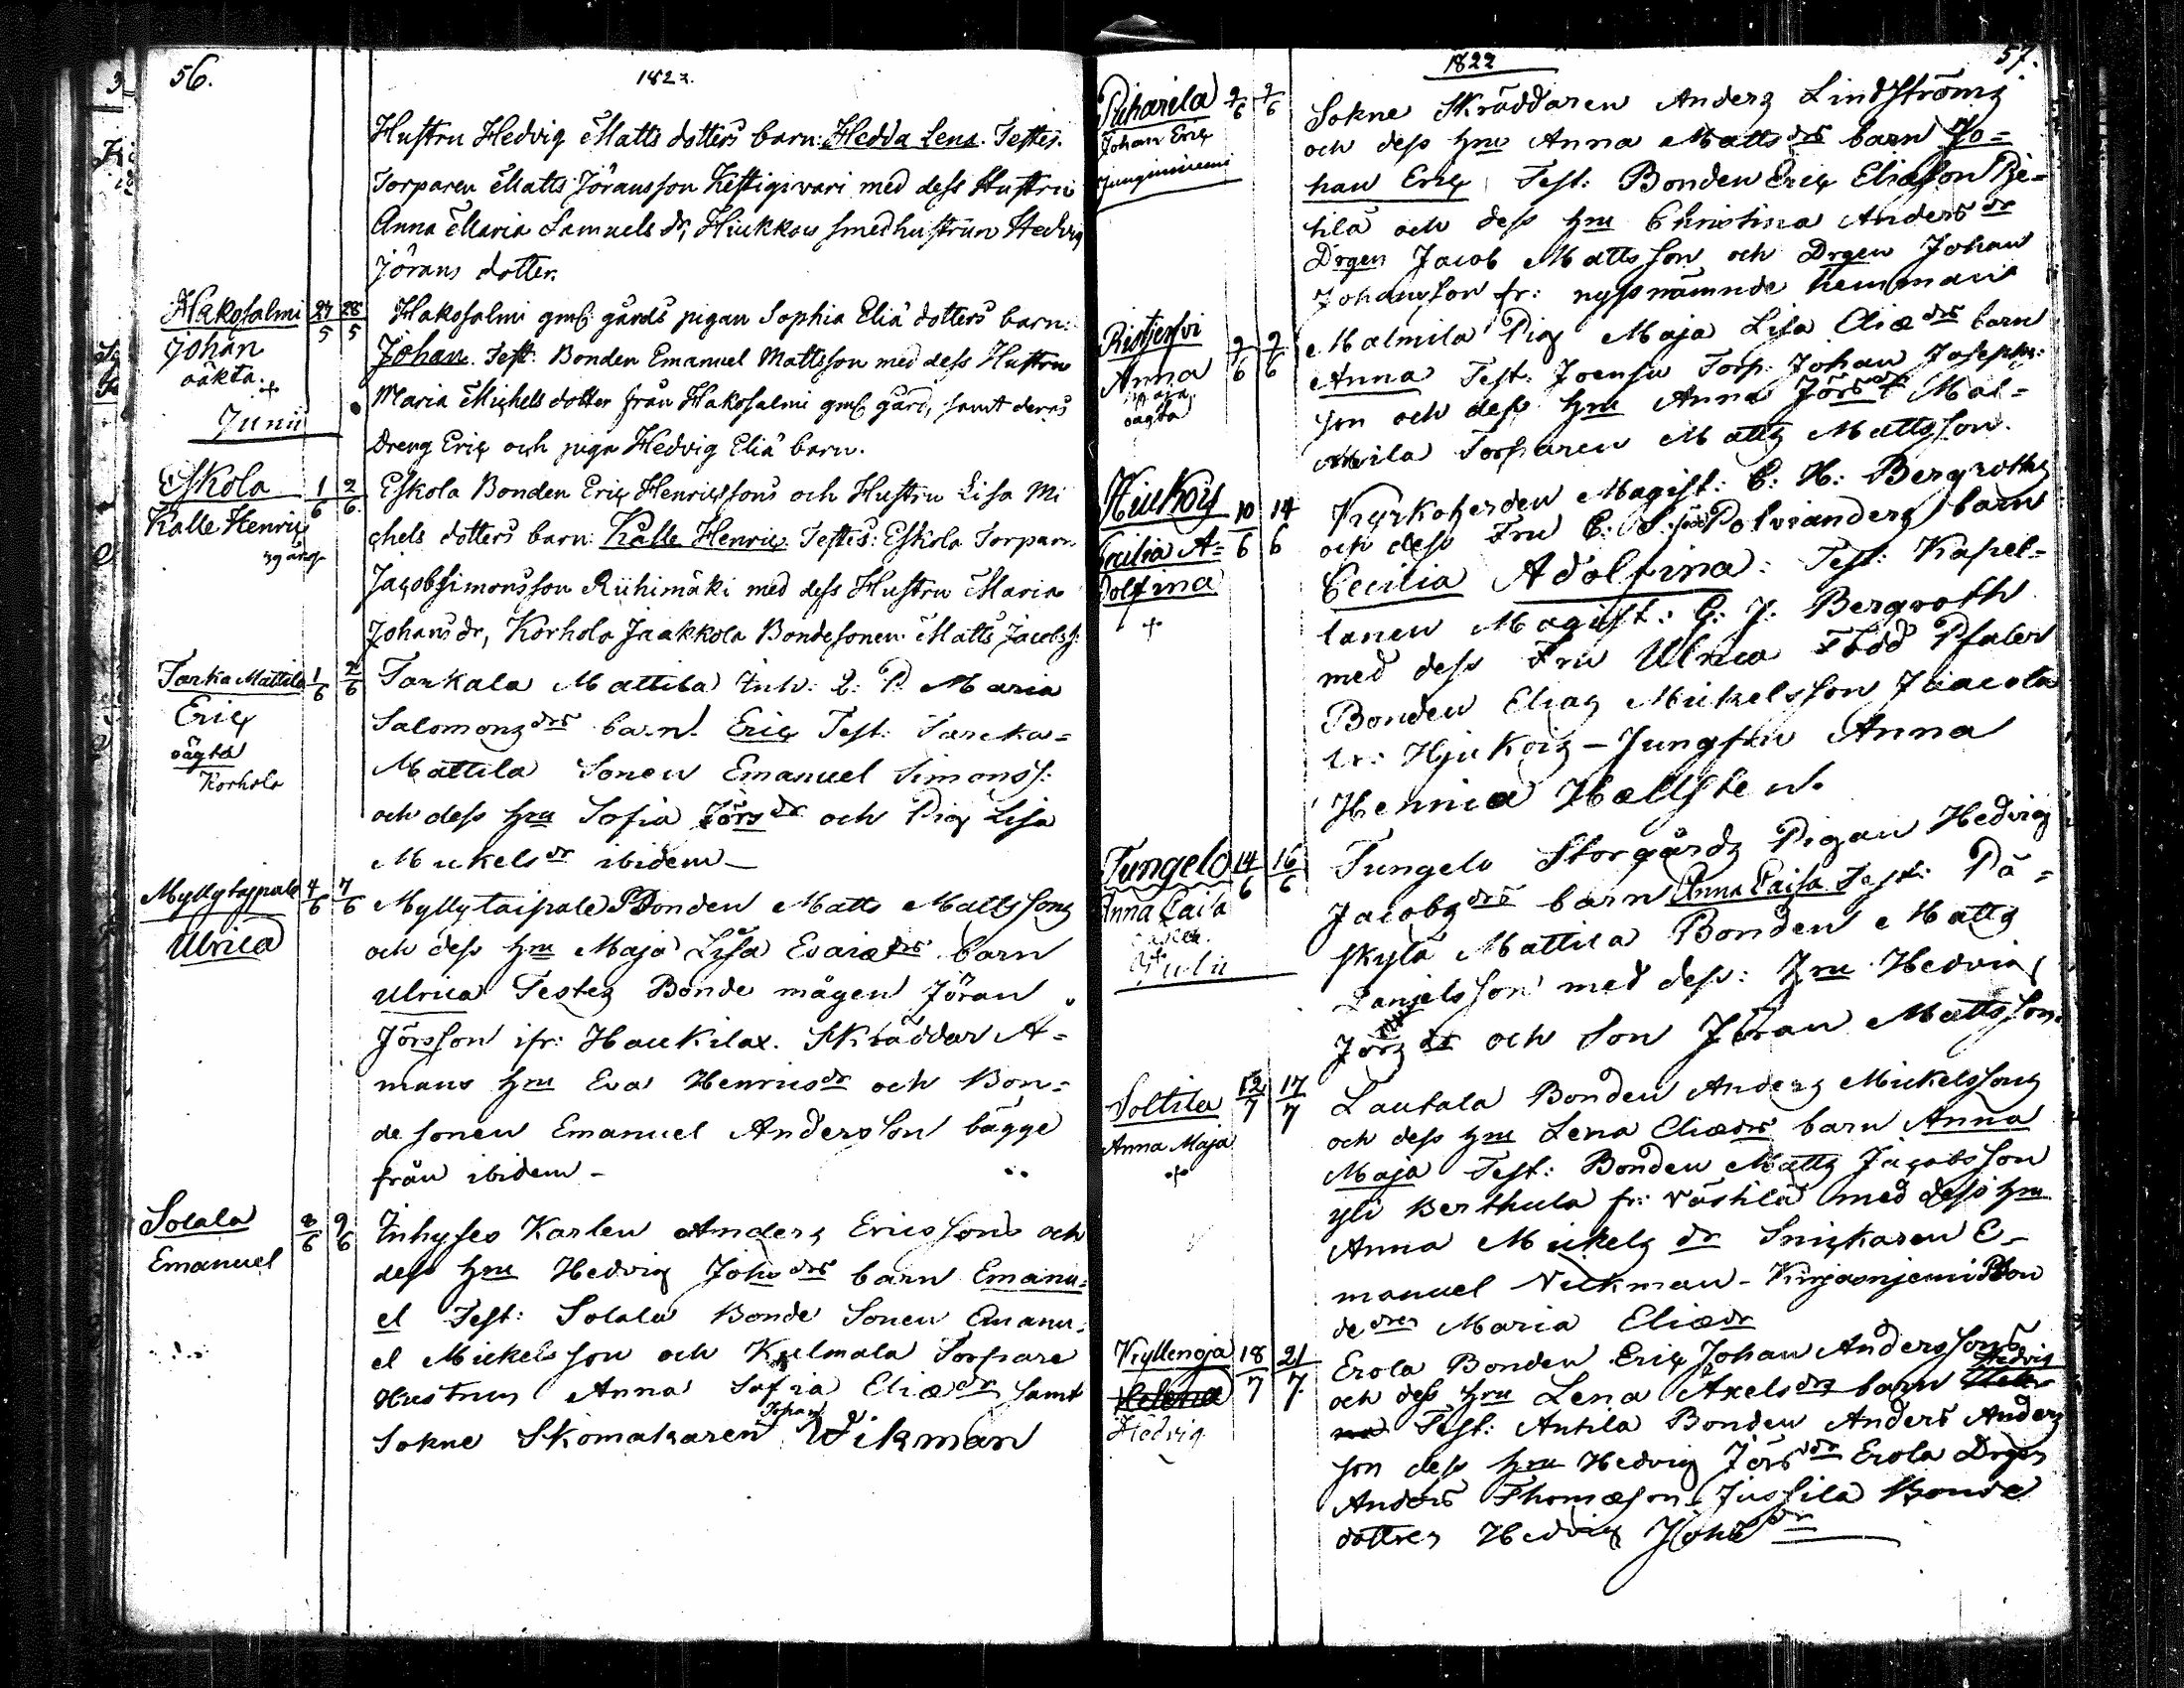 56.
1822.
Hustru Hedvig Matts dotters barn: Hedda Lena. Testes.
Torparen Matts Jöransson Kestigivari med dess Hustru
Anna Maria Samuels dr, Hiukkois smedhustrun Hedvig
Jörans dotter.
Hakosalmi 27/5 28/5 Hakosalmi gml: gårds pigan Sophia Eliä dotters barn:
Johan Johan. Test: Bonden Emanuel Mattsson med dess Hustru
oäkta. +
Maria Michels dotter från Hakosalmi gml gård, samt deras
Junii
Dreng Eric och piga Hedvig Eliä barn.
Eskola 1/6 2/6 Eskola Bonden Eric Henricssons och Hustru Lisa Mi
Kalle Henric chels dotters barn: Kalle Henric. Testes: Eskola Torparn
Jacob Simonsson Riihimäki med dess Hustru Maria
Johans dr, Korhola Jaakkola Bondesonen Matts Jacobss:
Tarka Mattila 1/6 2/6 Tarkala Mattila Inh: Q: P. Maria
Eric Salomons drs barn Eric Test: Tarcka=
oägta
Korhola
Mattila Sonen Emanuel Simonss:
och dess hru Sofia Jörs dr och Pig Lisa
Mickels dr ibidem—
Myllytaipale 4/6 7/6 Myllytaipale Bonden Matts Mattssons
Ulrica och dess hru Maja Lisa Esaiæ drs barn
Ulrica Testes Bonde mågen Jöran
Jörsson ifr: Haukilax. Skräddar A=
mans hru Eva Henricsdr och Bon=
de sonen Emanuel Andersson bägge
från ibidem -
Solala 8/6 9/6 Inhyses Karlen Anders Ericssons och
Emanuel dess hru Hedvig Johs drs barn Emanu=
el Test: Solala Bonde Sonen Emanu=
el Mickelsson och Kulmala Torpare
Hustrun Anna Sofia Eliæ dr samt
Sokne Skomakaren Johan Wikman
57.
1822
Piharila 2/6 2/6 Sokne Skräddaren Anders Lindströms
Johan Eric och dess hru Anna Matts drs barn Jo=
han Eric Test: Bonden Eric Eliasson Pie=
tilä och dess hru Christina Anders dr
Drgen Jacob Mattsson och Drgen Johan
Johansson fr: nyssnämnde hemman
Ristjerfvi 2/6 2/6 Malmila Pig Maja Lisa Eliæ drs barn
Anna Anna Test: Joensu Torp: Johan Josephs:
oägta
son och dess hru Anna Jörs dr Mal=
mila Torparen Matts Mattsson.
Hiukois 10/6 14/6 Kyrkoherden Magist: C: H: Bergroths
Cecilia A= och dess Fru C: S: Polvianders barn
dolfina Cecilia Adolfina: Test: Kapel=
+
lanen Magist: G: J: Bergroth
med dess Fru Ulrica Född Pfaler
Bonden Elias Mickelsson Jaacola
fr: Hjukois — Jungfru Anna
Hennica Hællsten.
Tungelo 14/6 16/6 Tungelo Storgårds Pigan Hedvig
Anna Caisa Jacobs drs barn Anna Caisa Test: Pä=
skylä Mattila Bonden Matts
Julii
Danjelsson med dess: hru Hedvig
Jörs dr och Son Jöran Mattsson.
Soltila 12/7 17/7 Lautala Bonden Anders Mickelssons
Anna Maja och dess hru Lena Eliædrs barn Anna
+
Maja Test: Bonden Matts Jacobsson
yli Berthula fr: Västilä med dess hru
Anna Mickels dr Snickaren E-
manuel Neckman - Kirjasnjemi Bon
de dren Maria Eliædr
Kyllenoja 18/7 21/7 Erola Bonden Eric Johan Anderssons
Helena och dess hru Lena Axels drs barn Hedvig
Hedvig Test: Antila Bonden Anders Anders
son dess hru Hedvig Jörs dr Erola Drgen
Anders Thomæson Jussila Bonde
dottren Hedvig Johs dr